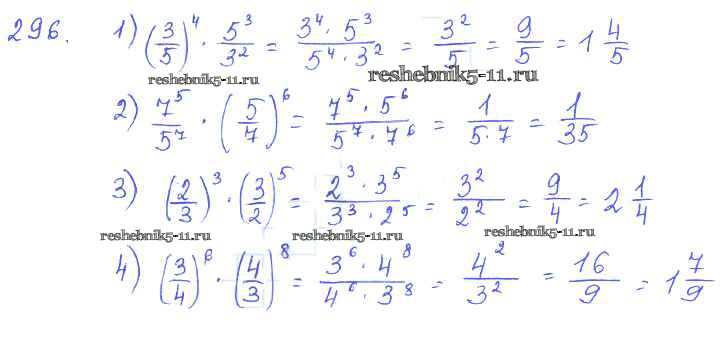 296. 1) (3/5)^4 · 5^3/3^2 = 3^4 · 5^3/5^4 · 3^2 = 3^2/5 = 9/5 = 1 4/5
reshebnik5-11.ru reshebnik5-11.ru
2) 7^5/5^7 · (5/7)^6 = 7^5 · 5^6/5^7 · 7^6 = 1/5·7 = 1/35
3) (2/3)^3 · (3/2)^5 = 2^3 · 3^5/3^3 · 2^5 = 3^2/2^2 = 9/4 = 2 1/4
reshebnik5-11.ru reshebnik5-11.ru reshebnik5-11.ru
4) (3/4)^6 · (4/3)^8 = 3^6 · 4^8/4^6 · 3^8 = 4^2/3^2 = 16/9 = 1 7/9